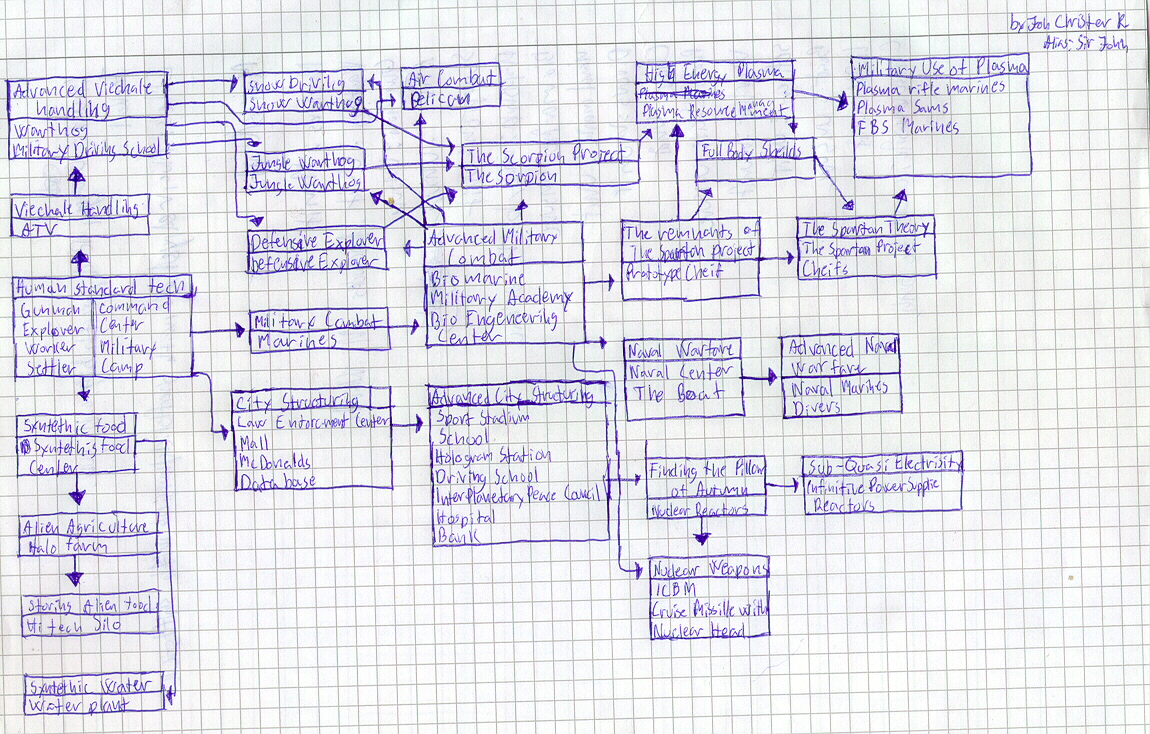 by Joh Christer R
Alias: Sir John
Advanced Viechale
handling
Warthog
Military Driving School
Snow Drivilig
Snow Warthog
Air Combat
Pelican
High Energy Plasma
Plasma Marines
Plasma Resource Managment
Military Use of Plasma
Plasma rifle marines
Plasma Sams
FBS Marines
Jungle Warthog
Jungle Warthog
The Scorpion Project
The Sorpion
Full Body Sheilds
Viechale Handling
ATV
Defensive Explorer
Defensive Explorer
Advanced Military
Combat
Bio marine
Military Academy
Bio Engeneering
Center
The remnants of
The Spartan project
Prototype Cheif
The Spartan Theory
The Spartan Project
Cheifs
Human standard tech
Gunman
Explorer
Worker
Settler
Command
Center
Military
Camp
Military Combat
Marines
Naval Warfare
Naval Center
The Boat
Advanced Naval
Warfare
Naval Marines
Divers
City Structuring
Law Enforcment Center
Mall
McDonalds
Database
Advanced City Structuring
Sport Stadium
School
Hologram Station
Driving School
Inter Planetary Peace Council
Hospital
Bank
Syntethic food
Syntethis food
Center
Finding the Pillow
of Autumn
Nuclear Reactors
Sub-Quasi Electrisity
Infinitive Power Supplie
Reactors
Alien Agriculture
Halo farm
Nuclear Weapons
ICBM
Cruise Missille with
Nuclear Head
Storing Alien food
Hi tech Silo
Syntethic Water
Water plant